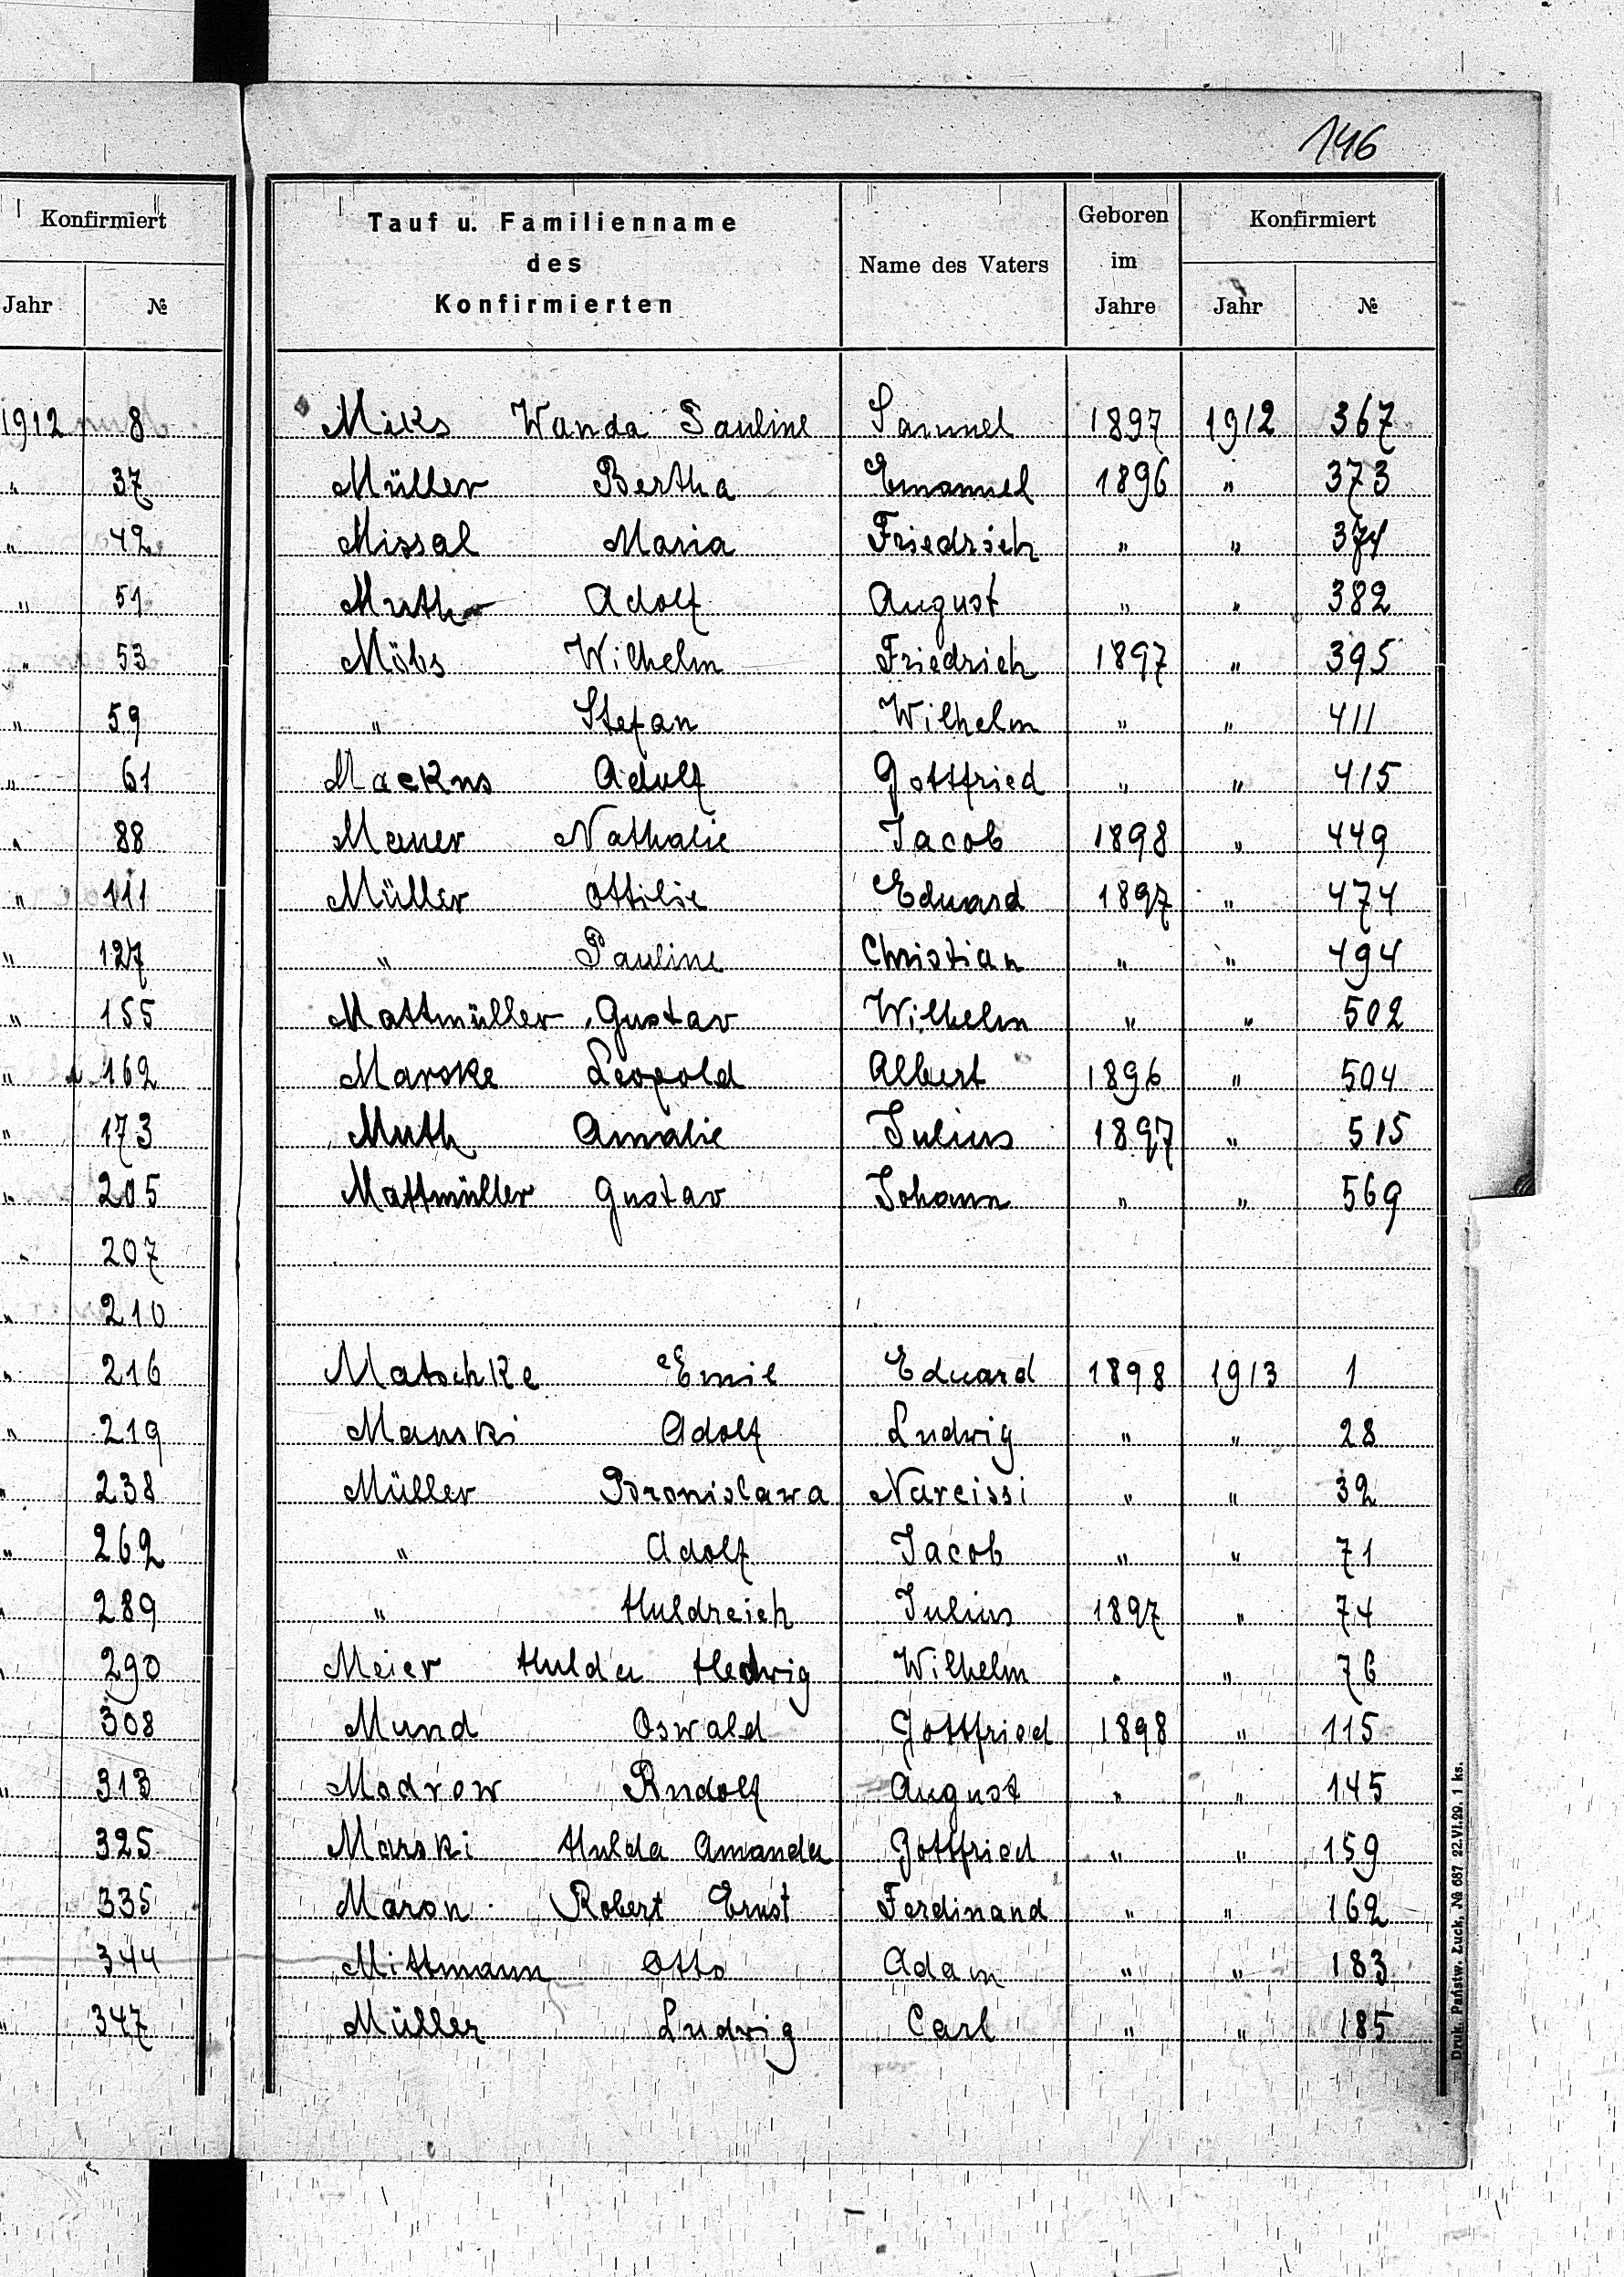 146
Konfirmiert
Jahr №
1912 8
" 37
" 42
" 51
" 53
" 59
" 61
" 88
" 111
" 127
" 155
" 162
" 173
" 205
" 207
" 210
" 216
" 219
" 238
" 262
" 289
" 290
308
" 313
325
335
344
" 347
Tauf u. Familienname des Konfirmierten Name des Vaters Geboren im Jahre Konfirmiert Jahr №
Miks Wanda Pauline Samuel 1897 1912 367
Müller Bertha Emanuel 1896 " 373
Missal Maria Friedrich " " 374
Muth Adolf August " " 382
Möbs Wilhelm Friedrich 1897 " 395
" Stefan Wilhelm " " 411
Mackus Adolf Gottfried " " 415
Nathalie Jacob 1898 " 449
Müller Ottilie Eduard 1897 " 474
" Pauline Christian " " 494
Mattmüller Gustav Wilhelm " " 502
Marske Leopold Albert 1896 " 504
Muth Amalie Julius 1897 " 515
Mattmüller Gustav Johann " " 569
Matschke Emil Eduard 1898 1913 1
Manski Adolf Ludwig " " 28
Müller Bronislawa Narcissi " " 32
" Adolf Jacob " " 71
" Huldreich Julius 1897 " 74
Meier Hulda Hedwig Wilhelm " " 76
Mund Oswald Gottfried 1898 " 115
Modrow Rudolf August " " 145
Marski Hulda Amanda Gottfried " " 159
Maron Robert Ernst Ferdinand " " 162
Mittmann Otto Adam " " 183
Müller Ludwig Carl " " 185
Druk. Państw. Łuck, № 687 22.VI.29. 1 ks.